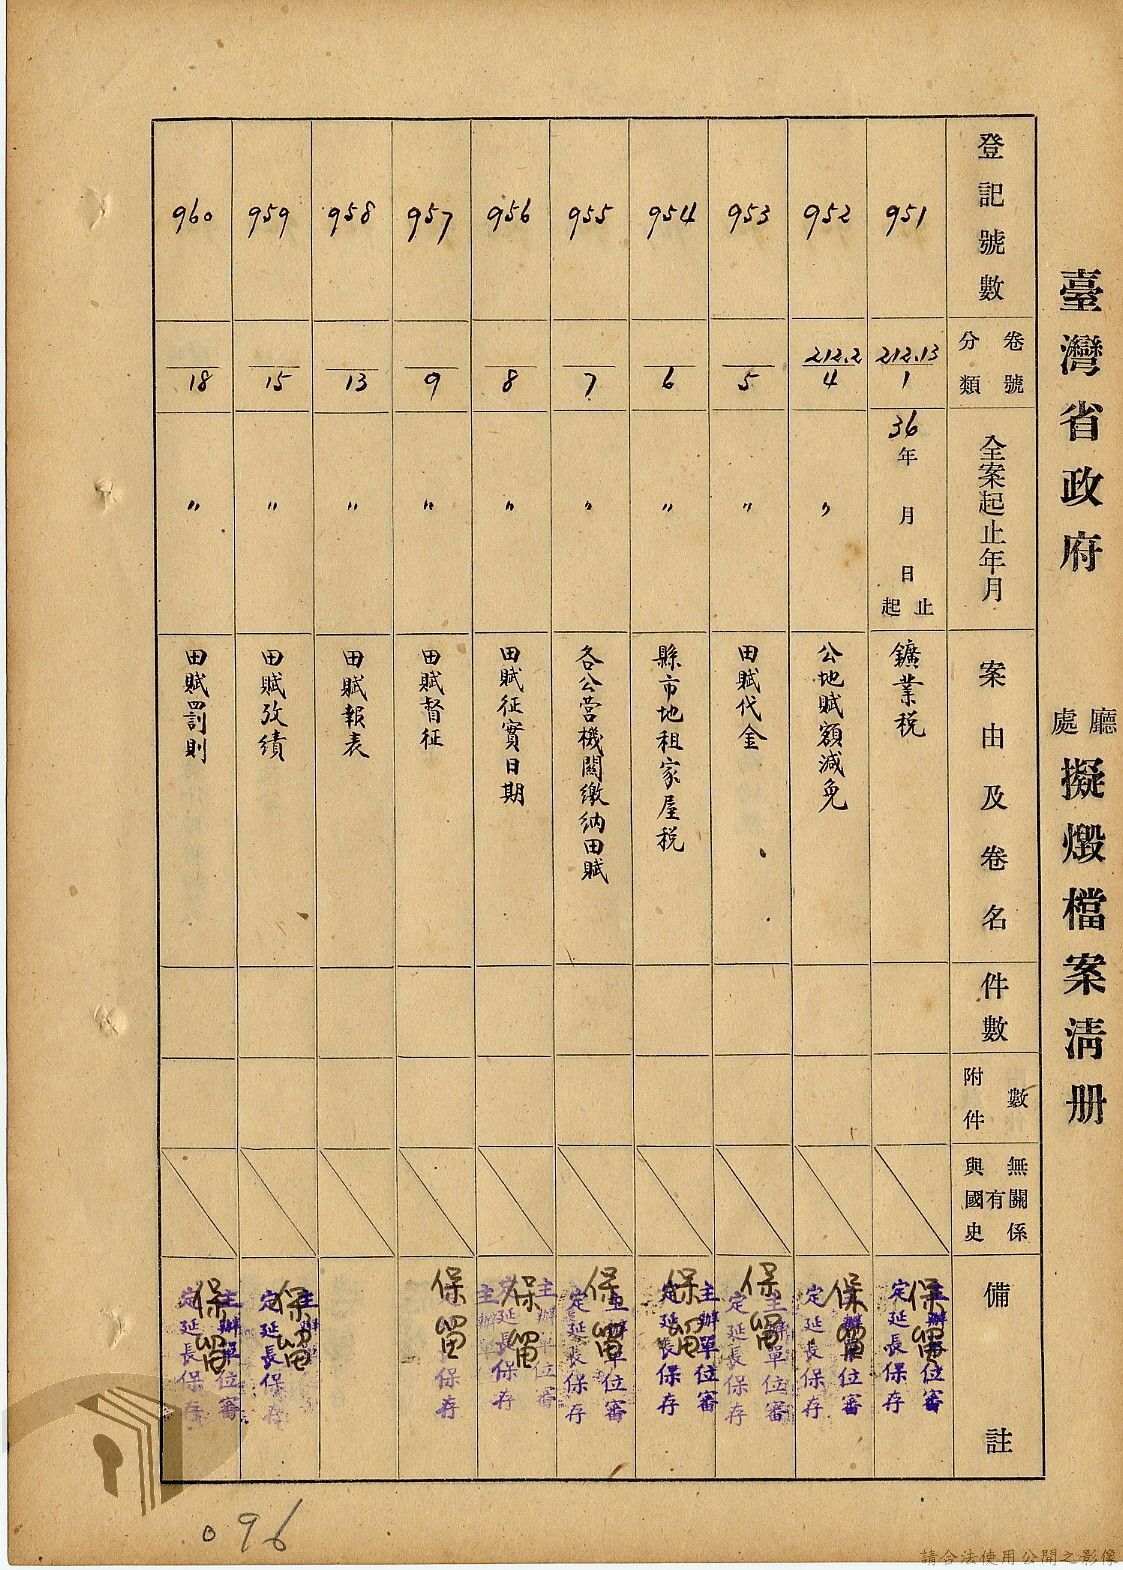 臺灣省政府 廳處 擬燬檔案清册
登記號數
卷號
分類
全案起止年月
案由及卷名
件數
附件數
與國史有無關係
備註
951
212.13
1
36年 月 日 起止
鑛業税
保留
主辦單位審
定延長保存
952
212.2
4
〃
公地賦額減免
保留
主辦單位審
定延長保存
953
5
〃
田賦代金
保留
主辦單位審
定延長保存
954
6
〃
縣市地租家屋税
保留
主辦單位審
定延長保存
955
7
〃
各公営機関繳納田賦
保留
主辦單位審
定延長保存
956
8
〃
田賦征實日期
保留
主辦單位審
定延長保存
957
9
〃
田賦督征
保留
保存
958
13
〃
田賦報表
959
15
〃
田賦攷績
保留
主辦
定延長保存
960
18
〃
田賦罰則
保留
主辦單位審
定延長保存
096
請合法使用公開之影像